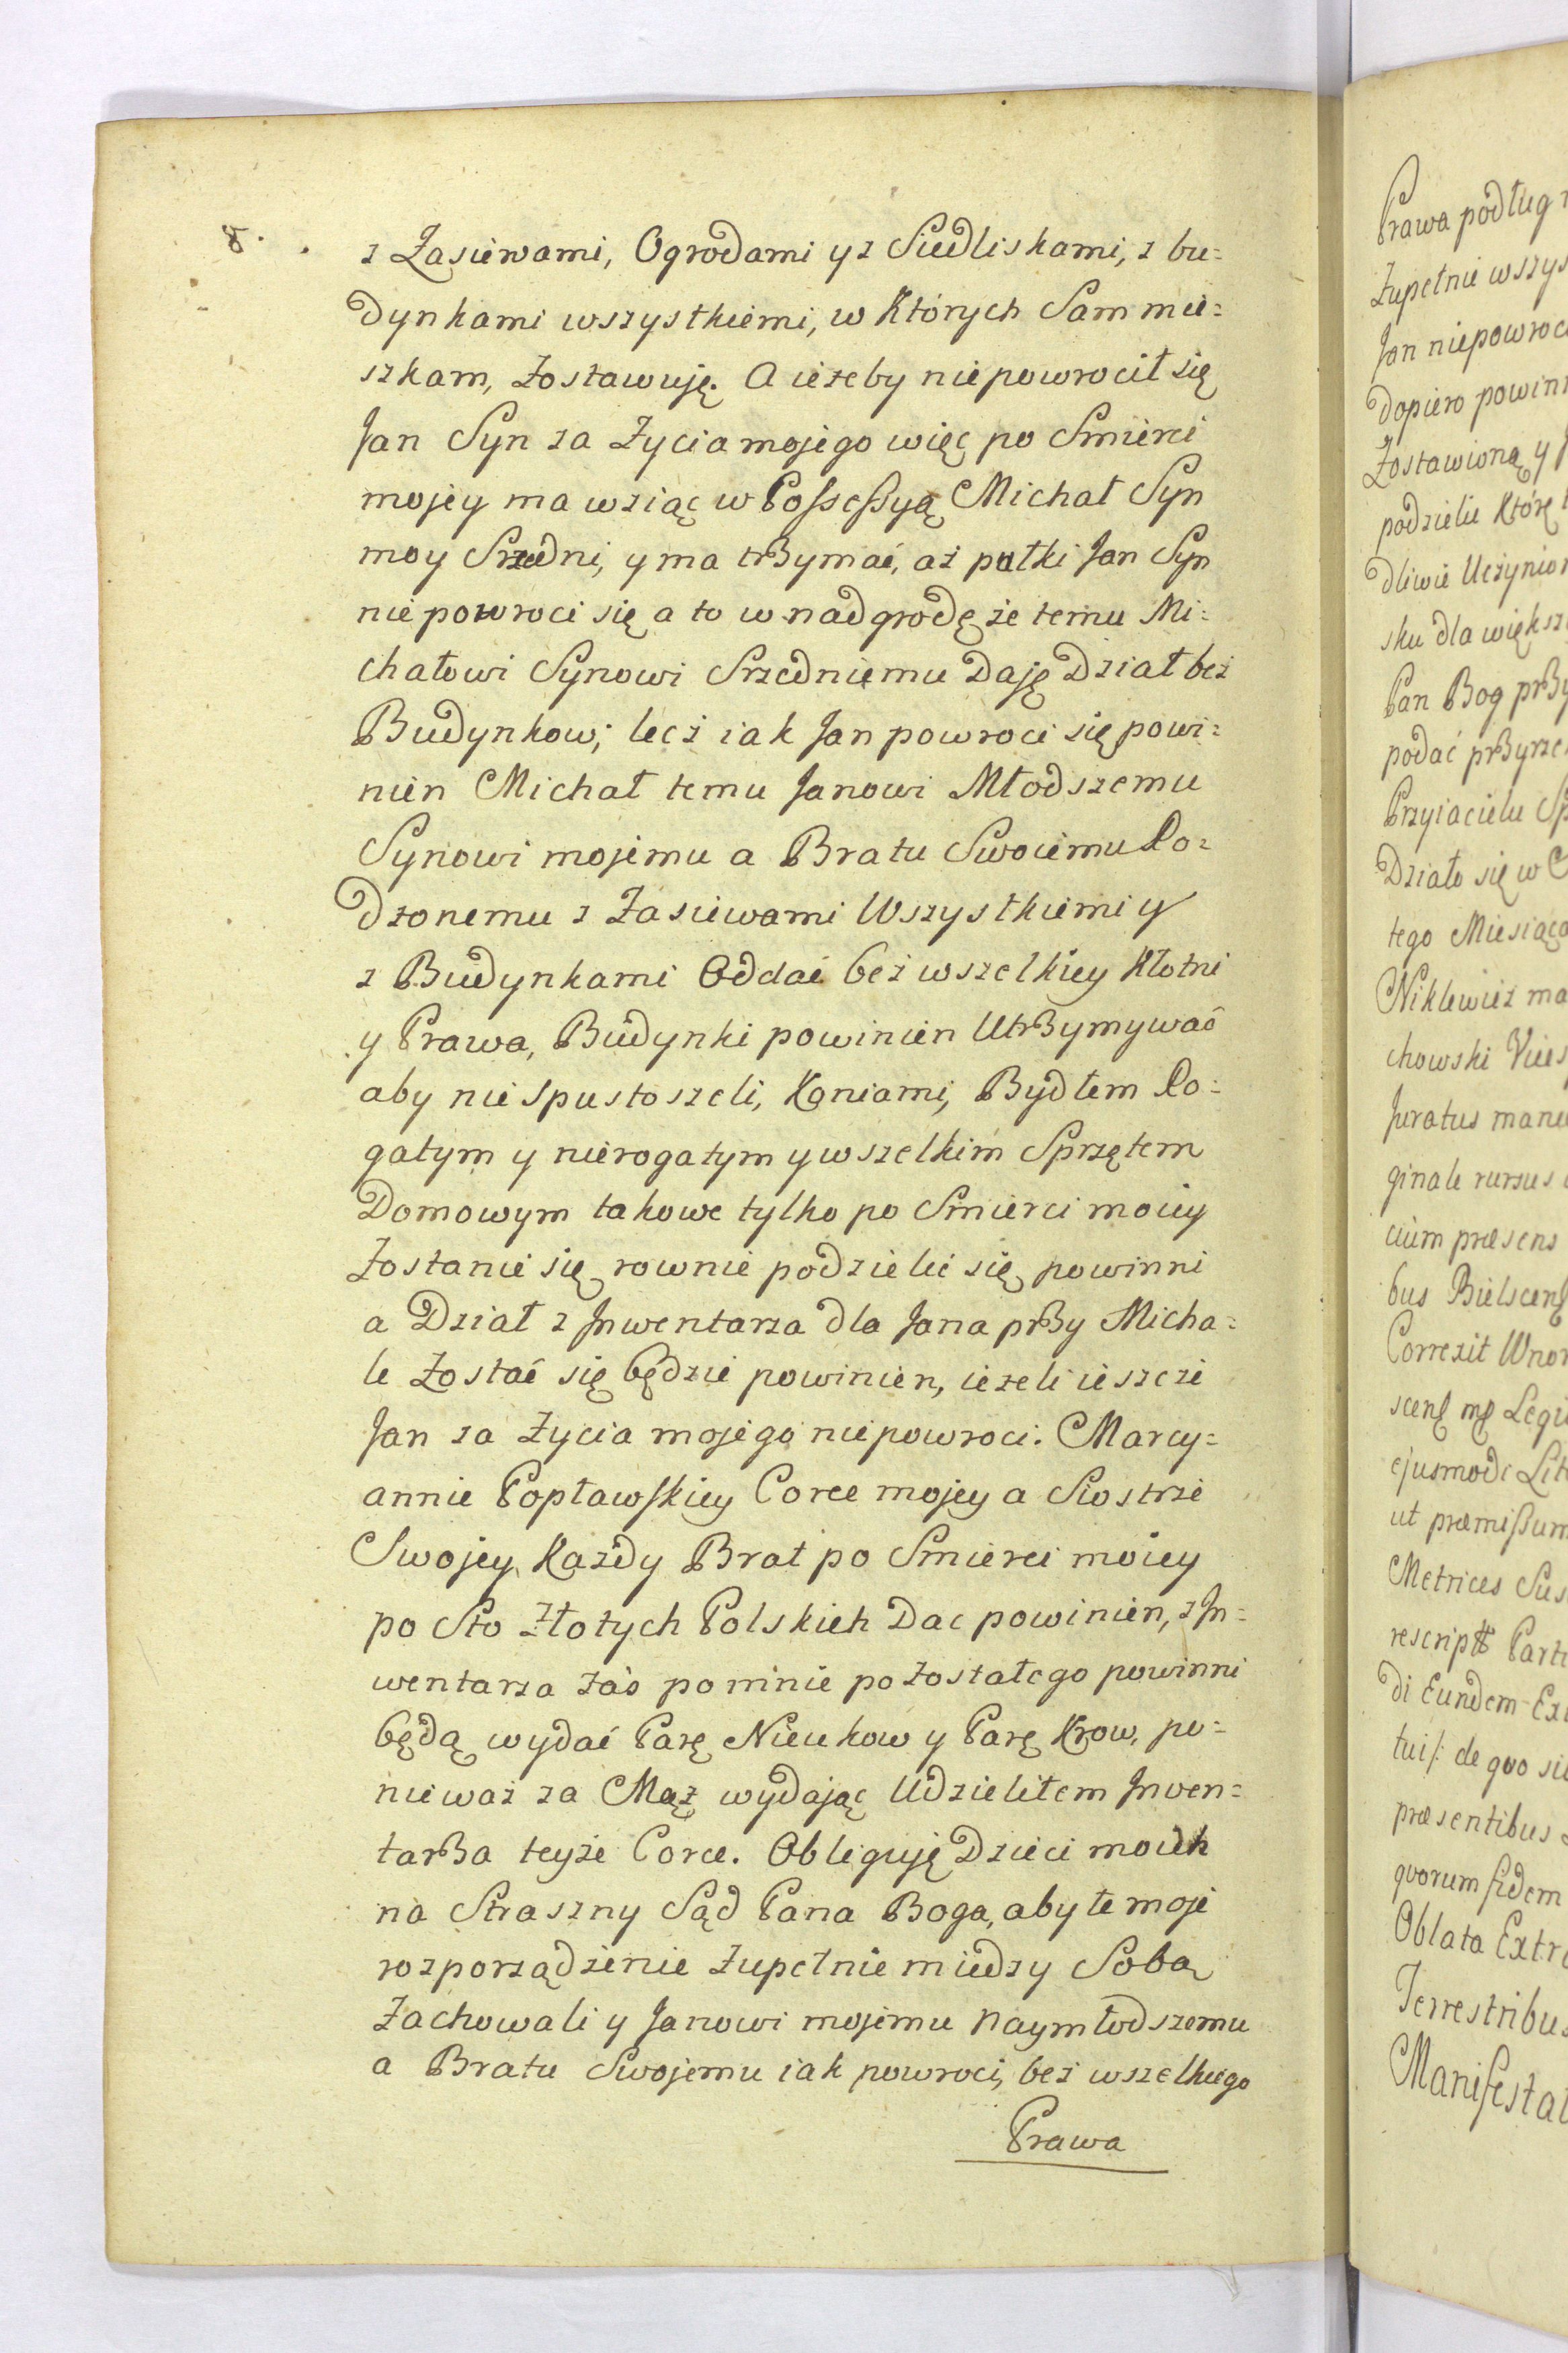 8.
z Zasiewami, Ogrodami y z Siedliskami, z bu=
dynkami wszystkiemi, w Których Sam mie=
szkam, Zostawuję. A ieżeby niepowrocił się
Jan Syn za Życia mojego więc po Smierci
mojey ma wziąć w Possessyą Michał Syn
moy Srzedni, y ma trzymać, aż potki Jan Syn
niepowroci się a to w nadgrodę że temu Mi=
chałowi Synowi Srzedniemu Daję Dział bez
Budynkow; lecz iak Jan powroci się powi=
nien Michał temu Janowi Młodszemu
Synowi mojemu a Bratu Swoiemu Ro=
dzonemu z Zasiewami Wszystkiemi y
z Budynkami Oddać bez wszelkiey Kłotni
y Prawa, Budynki powinien Utrzymywać
aby nie Spustoszeli, Koniami, Bydłem Ro=
gatym y nierogatym y wszelkim Sprzętem
Domowym takowe tylko po Smierci moiey
Zostanie się rownie podzielić się powinni
a Dział z Jnwentarza dla Jana przy Micha=
le Zostać się będzie powinien, ieżeli ieszcze
Jan za Życia mojego niepowroci. Marcy=
annie Popławskiey Corce mojey a Siostrze
Swojey Każdy Brat po Smierci moiey
po Sto Złotych Polskich Dac powinien, z Jn=
wentarza zaś pomnie pozostałego powinni
będą wydać Parę Nieukow y Parę Krow, po=
nieważ za Mąż wydając Udzieliłem Jnwen=
tarza teyże Corce. Obliguję Dzieci moich
na Straszny Sąd Pana Boga, aby te moje
rozporządzenie Zupełnie miedzy Sobą
Zachowali y Janowi mojemu Naymłodszemu
a Bratu Swojemu iak powroci, bez wszelkiego
Prawa
Prawa podług
Zupełnie wszys
Jan niepowroc
dopiero powin
Zostawioną y
podzielić Którę
dliwie Uczynio
sku dla większ
Pan Bog przy
podać przyrze
Przyiacielu Sp
Działo się w
tego Miesiąca
Niklewicz ma
chowski Vices
Juratus manu
ginale rursus
cium præsens
bus Bielscens
Correxit Wnor
scens mp Legi
ejusmodi Lit
ut præmissum
Metrices Sus
rescript Parti
di Eundem Ex
tuis: de quo si
præsentibus
quorum fidem
Oblata Extr
Terrestribus
Manifestat